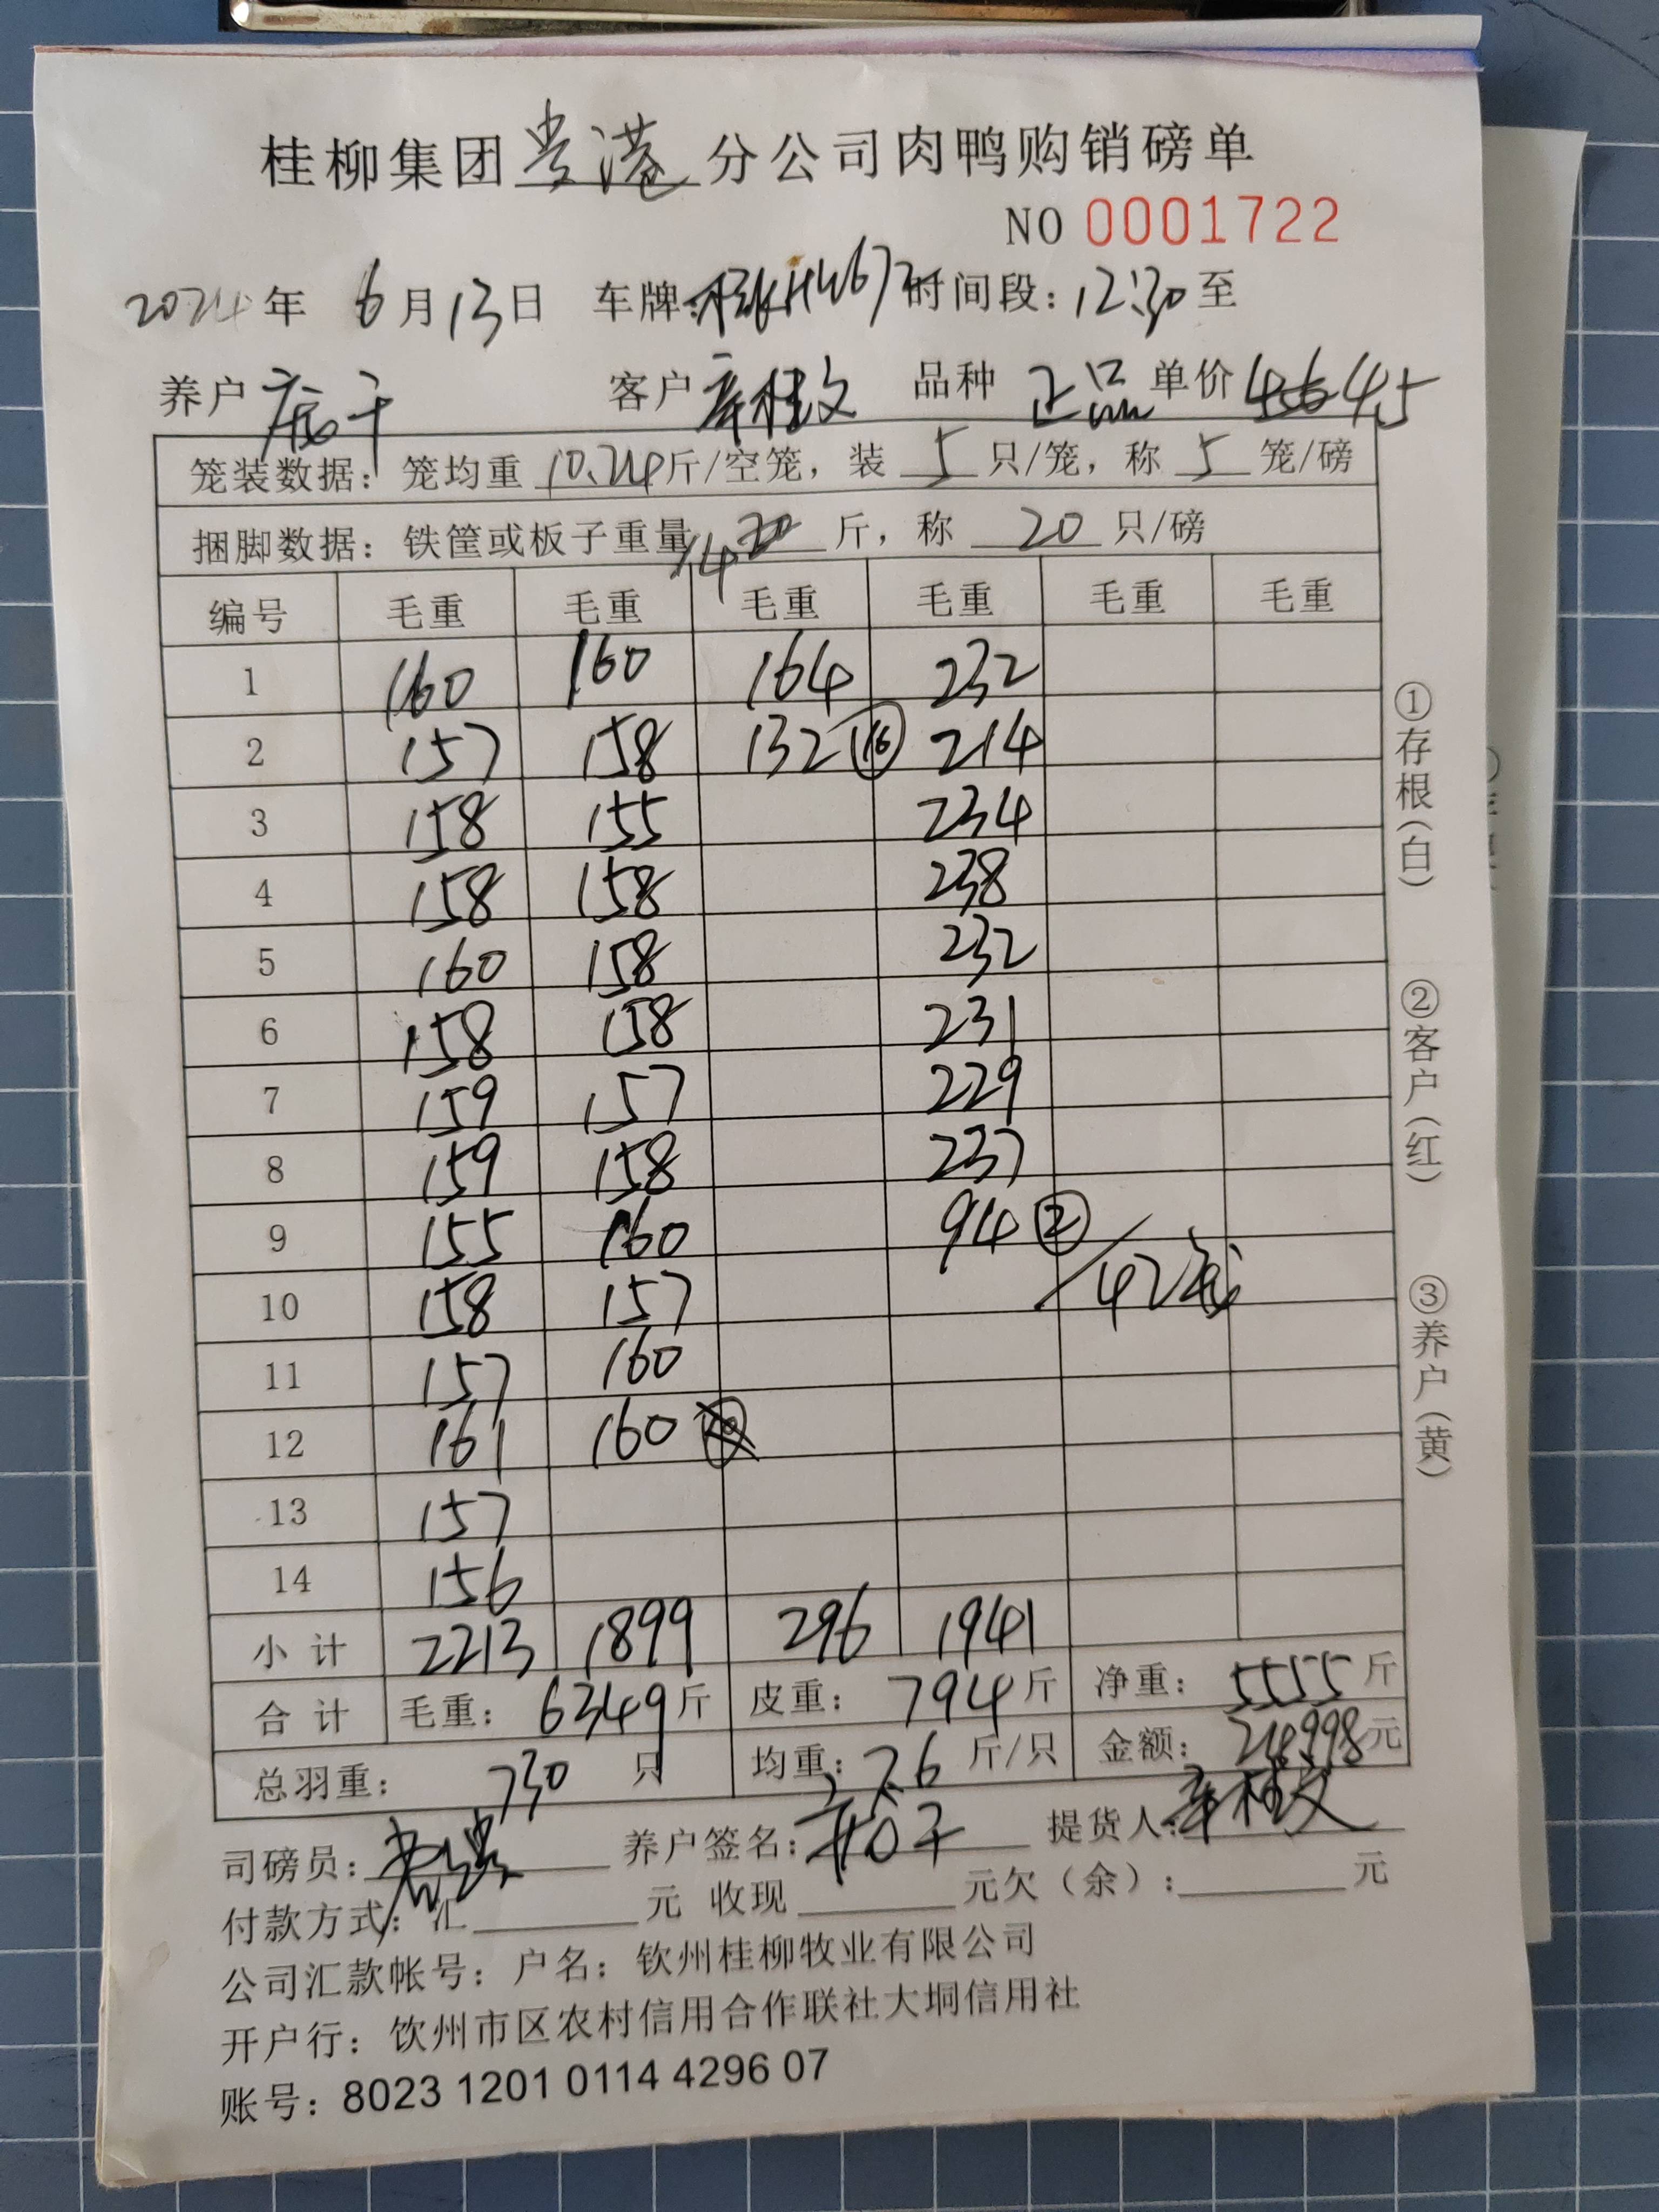 桂柳集团贵港分公司肉鸭购销磅单
NO 0001722
2024年 6月13日 车牌: 时间段:12:30至
养户 客户 辛桂文 品种 正品 单价 45
笼装数据: 笼均重 10.24斤/空笼, 装 5 只/笼, 称 5 笼/磅
捆脚数据: 铁筐或板子重量 14 斤, 称 20 只/磅
编号 毛重 毛重 毛重 毛重 毛重 毛重
1 160 160 164 232
2 157 158 132 ⑯ 214
3 158 155 234
4 158 158 238
5 160 158 232
6 158 158 231
7 159 157 229
8 159 158 237
9 155 160 94 ②
10 158 157 /42笼
11 157 160
12 161 160
13 157
14 156
小计 2213 1899 296 1941
合计 毛重: 6349斤 皮重: 794斤 净重: 5555斤
总羽重: 730 只 均重: 7.6 斤/只 金额: 24998元
司磅员: 养户签名: 提货人: 辛桂文
付款方式: 汇 元 收现 元欠(余): 元
公司汇款帐号: 户名: 钦州桂柳牧业有限公司
开户行: 钦州市区农村信用合作联社大垌信用社
账号: 8023 1201 0114 4296 07
①存根(白)
②客户(红)
③养户(黄)